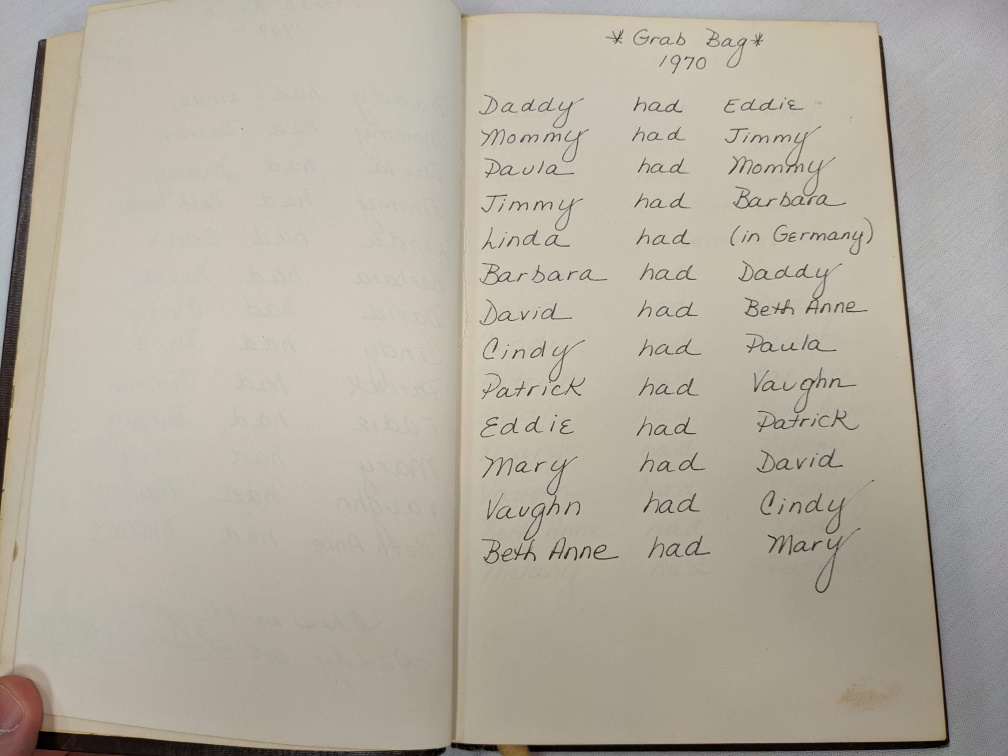 * Grab Bag *
1970
Daddy had Eddie
Mommy had Jimmy
Paula had Mommy
Jimmy had Barbara
Linda had (in Germany)
Barbara had Daddy
David had Beth Anne
Cindy had Paula
Patrick had Vaughn
Eddie had Patrick
Mary had David
Vaughn had Cindy
Beth Anne had Mary